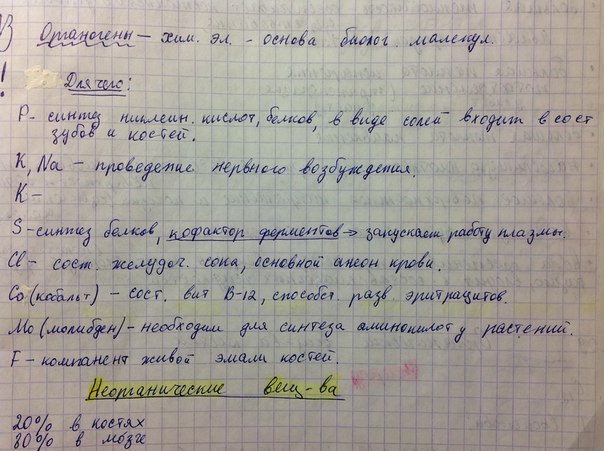 Органогены – хим. эл. - основа биолог. малекул.
!
Для чего:
P- синтез никлеин. кислот, белков, в виде солей входит в сост
зубов и костей.
K, Na - проведение нервного возбуждения.
K -
S - синтез белков, кофактор ферментов → запускает работу плазмы.
Cl - сост. желудоч. сока, основной анеон крови.
Co (кобальт) - сост. вит B-12, способст. разв. эритрацитов.
Mo (молибден) - необходим для синтеза аминокилот у растений.
F - компанент живой эмали костей.
Неорганические вещ-ва
20% в костях
80% в мозге